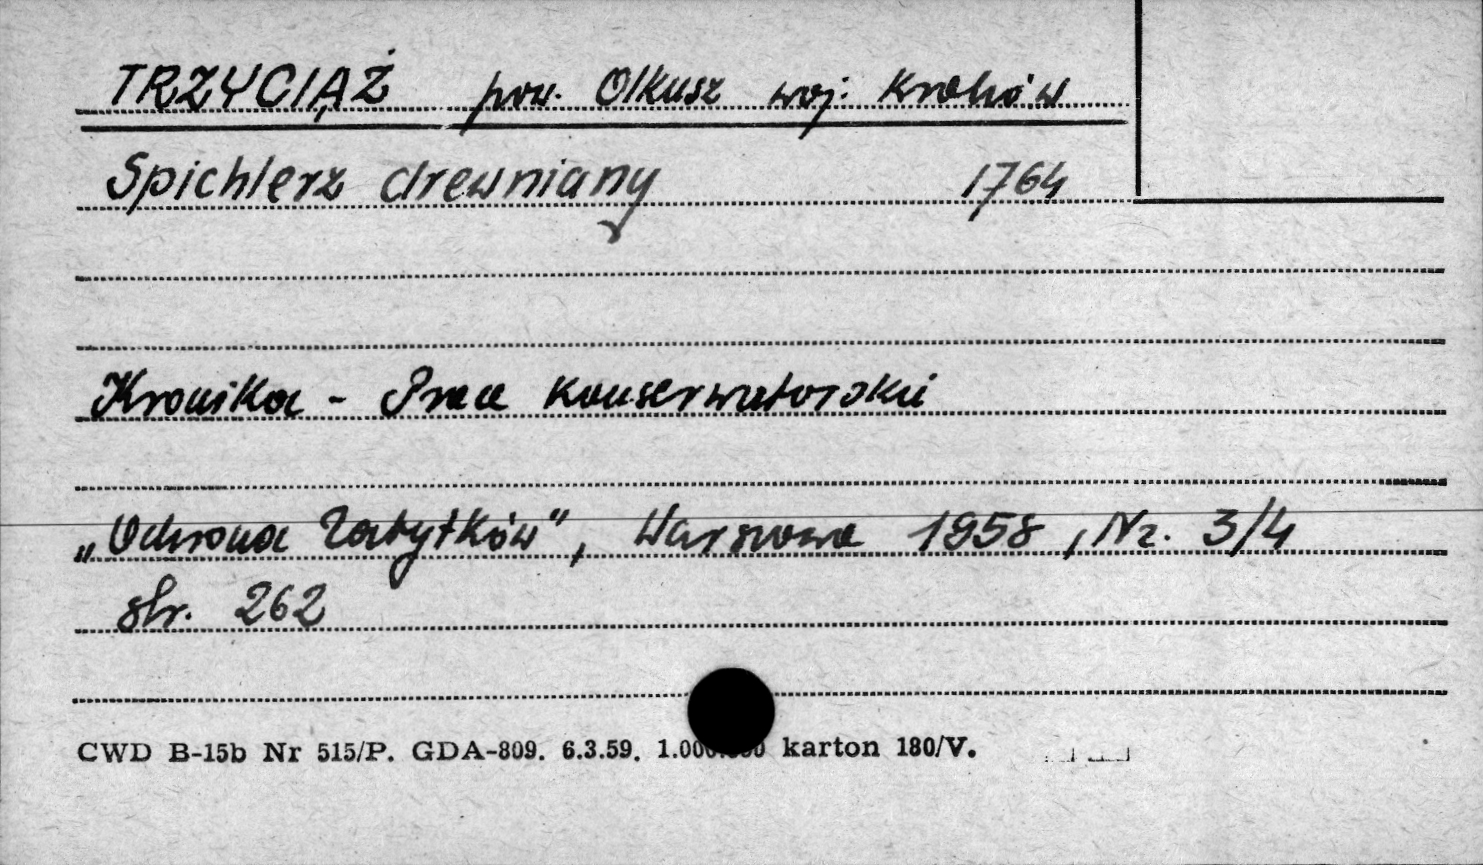 TRZYCIĄŻ pow. Olkusz woj. Kraków
Spichlerz drewniany 1764
Kronika - Prace konserwatorskie
„Ochrona Zabytków”, Warszawa 1958, Nr. 3/4
str. 262
CWD B-15b Nr 515/P. GDA-809. 6.3.59. karton 180/V.